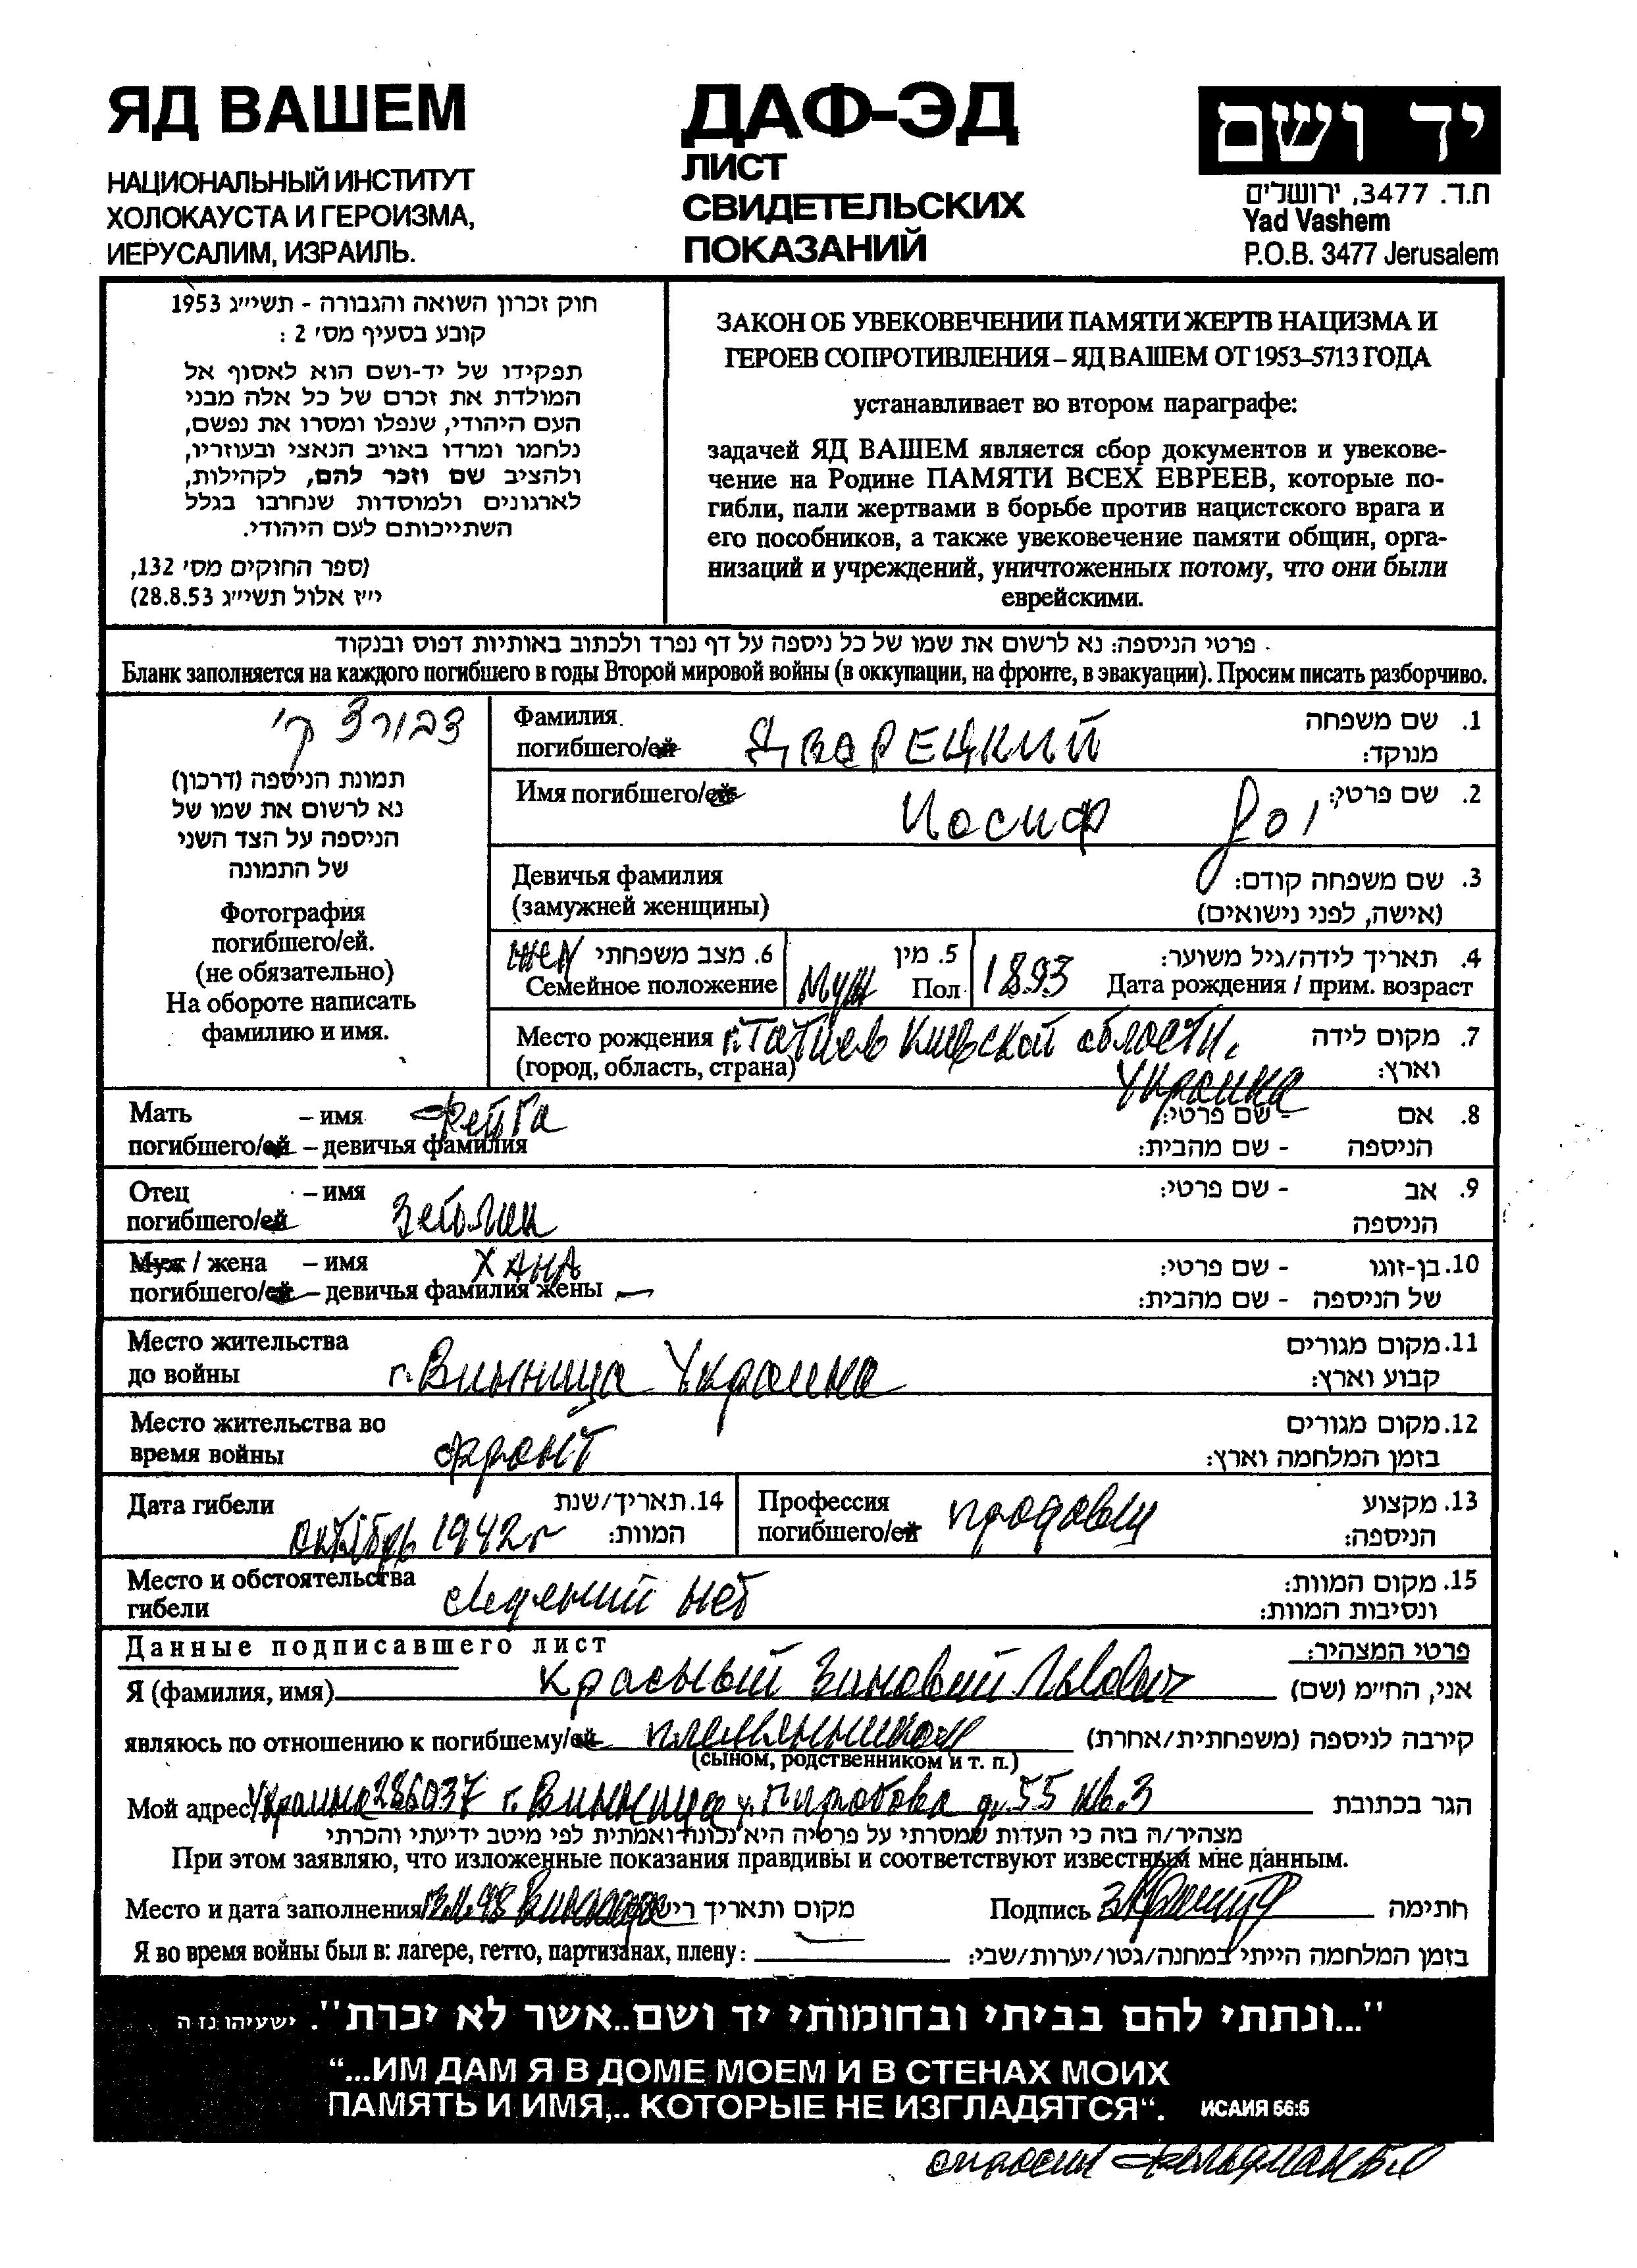 ЯД ВАШЕМ
НАЦИОНАЛЬНЫЙ ИНСТИТУТ
ХОЛОКАУСТА И ГЕРОИЗМА,
ИЕРУСАЛИМ, ИЗРАИЛЬ.
ДАФ-ЭД
ЛИСТ
СВИДЕТЕЛЬСКИХ
ПОКАЗАНИЙ
יד ושם
ת.ד. 3477, ירושלים
Yad Vashem
P.O.B. 3477 Jerusalem
חוק זכרון השואה והגבורה - תשי״ג 1953
קובע בסעיף מס׳ 2 :
תפקידו של יד-ושם הוא לאסוף אל
המולדת את זכרם של כל אלה מבני
העם היהודי, שנפלו ומסרו את נפשם,
נלחמו ומרדו באויב הנאצי ובעוזריו,
ולהציב שם וזכר להם, לקהילות,
לארגונים ולמוסדות שנחרבו בגלל
השתייכותם לעם היהודי.
(ספר החוקים מס׳ 132,
י״ז אלול תשי״ג 28.8.53)
ЗАКОН ОБ УВЕКОВЕЧЕНИИ ПАМЯТИ ЖЕРТВ НАЦИЗМА И
ГЕРОЕВ СОПРОТИВЛЕНИЯ – ЯД ВАШЕМ ОТ 1953–5713 ГОДА
устанавливает во втором параграфе:
задачей ЯД ВАШЕМ является сбор документов и увекове-
чение на Родине ПАМЯТИ ВСЕХ ЕВРЕЕВ, которые по-
гибли, пали жертвами в борьбе против нацистского врага и
его пособников, а также увековечение памяти общин, орга-
низаций и учреждений, уничтоженных потому, что они были
еврейскими.
פרטי הניספה: נא לרשום את שמו של כל ניספה על דף נפרד ולכתוב באותיות דפוס ובנקוד
Бланк заполняется на каждого погибшего в годы Второй мировой войны (в оккупации, на фронте, в эвакуации). Просим писать разборчиво.
תמונת הניספה (דרכון)
נא לרשום את שמו של
הניספה על הצד השני
של התמונה
Фотография
погибшего/ей.
(не обязательно)
На обороте написать
фамилию и имя.
Фамилия
погибшего/ей ДВАРЕЦКИЙ
1. שם משפחה
מנוקד:
Имя погибшего/ей Иосиф
2. שם פרטי:
Девичья фамилия
(замужней женщины)
3. שם משפחה קודם:
(אישה, לפני נישואים)
жен 6. מצב משפחתי
Семейное положение
5. מין
муж Пол
1893 4. תאריך לידה/גיל משוער:
Дата рождения / прим. возраст
Место рождения г. Татиев Киевской области,
(город, область, страна) Украина
7. מקום לידה
וארץ:
Мать – имя Фейга
погибшего/ей – девичья фамилия
8. אם - שם פרטי:
הניספה - שם מהבית:
Отец – имя
погибшего/ей
9. אב - שם פרטי:
הניספה
Муж / жена – имя ХАНА
погибшего/ей – девичья фамилия жены —
10. בן-זוגו - שם פרטי:
של הניספה - שם מהבית:
Место жительства
до войны г. Винница Украина
11. מקום מגורים
קבוע וארץ:
Место жительства во
время войны фронт
12. מקום מגורים
בזמן המלחמה וארץ:
Дата гибели
октябрь 1942 г
14. תאריך/שנת
המוות:
Профессия
погибшего/ей продавец
13. מקצוע
הניספה:
Место и обстоятельства
гибели сведений нет
15. מקום המוות:
ונסיבות המוות:
Данные подписавшего лист
פרטי המצהיר:
Я (фамилия, имя) Красный Зиновий Львович אני, הח״מ (שם)
являюсь по отношению к погибшему/ей племянником קירבה לניספה (משפחתית/אחרת)
(сыном, родственником и т. п.)
Мой адрес Украина 286037 г. Винница у. Пирогова д. 55 кв. 3 הגר בכתובת
מצהיר/ה בזה כי העדות שמסרתי על פרטיה היא נכונה ואמתית לפי מיטב ידיעתי והכרתי
При этом заявляю, что изложенные показания правдивы и соответствуют известным мне данным.
Место и дата заполнения Винница מקום ותאריך Подпись חתימה
Я во время войны был в: лагере, гетто, партизанах, плену: בזמן המלחמה הייתי במחנה/גטו/יערות/שבי:
"...ונתתי להם בביתי ובחומותי יד ושם..אשר לא יכרת". ישעיהו נז ה
“...ИМ ДАМ Я В ДОМЕ МОЕМ И В СТЕНАХ МОИХ
ПАМЯТЬ И ИМЯ,.. КОТОРЫЕ НЕ ИЗГЛАДЯТСЯ“. ИСАИЯ 56:5